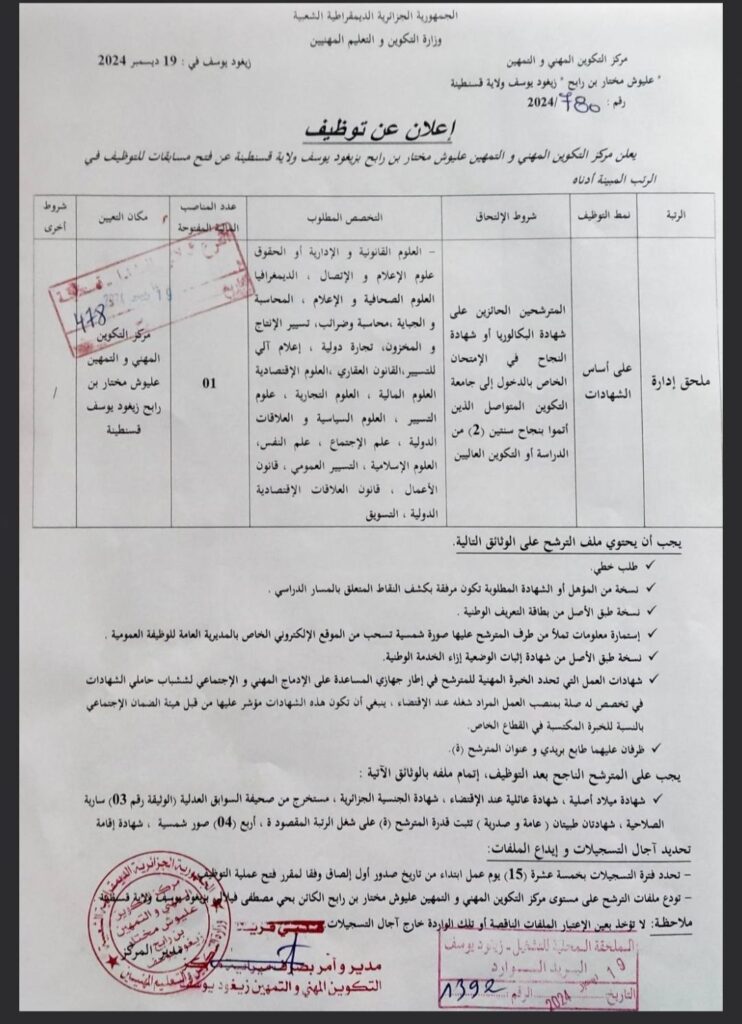 الجمهورية الجزائرية الديمقراطية الشعبية
وزارة التكوين و التعليم المهنيين
مركز التكوين المهني و التمهين
زيغود يوسف في : 19 ديسمبر 2024
" عليوش مختار بن رابح " زيغود يوسف ولاية قسنطينة
رقم : 780/2024
إعلان عن توظيف
يعلن مركز التكوين المهني و التمهين عليوش مختار بن رابح بزيغود يوسف ولاية قسنطينة عن فتح مسابقات للتوظيف في
الرتب المبينة أدناه
الرتبة
نمط التوظيف
شروط الإلتحاق
التخصص المطلوب
عدد المناصب
المالية المفتوحة
مكان التعيين
شروط
أخرى
ملحق إدارة
على أساس
الشهادات
المترشحين الحائزين على
شهادة البكالوريا أو شهادة
النجاح في الإمتحان
الخاص بالدخول إلى جامعة
التكوين المتواصل الذين
أتموا بنجاح سنتين (2) من
الدراسة أو التكوين العاليين
– العلوم القانونية و الإدارية أو الحقوق
علوم الإعلام و الإتصال ، الديمغرافيا
العلوم الصحافية و الإعلام ، المحاسبة
و الجباية ،محاسبة وضرائب، تسيير الإنتاج
و المخزون، تجارة دولية ، إعلام آلي
للتسيير،القانون العقاري ،العلوم الإقتصادية
العلوم المالية ، العلوم التجارية ، علوم
التسيير ، العلوم السياسية و العلاقات
الدولية ، علم الإجتماع ، علم النفس،
العلوم الإسلامية ، التسيير العمومي ، قانون
الأعمال ، قانون العلاقات الإقتصادية
الدولية ، التسويق
01
مركز التكوين
المهني و التمهين
عليوش مختار بن
رابح زيغود يوسف
قسنطينة
/
478
يجب أن يحتوي ملف الترشح على الوثائق التالية.
✓ طلب خطي.
✓ نسخة من المؤهل أو الشهادة المطلوبة تكون مرفقة بكشف النقاط المتعلق بالمسار الدراسي .
✓ نسخة طبق الأصل من بطاقة التعريف الوطنية .
✓ إستمارة معلومات تملأ من طرف المترشح عليها صورة شمسية تسحب من الموقع الإلكتروني الخاص بالمديرية العامة للوظيفة العمومية .
✓ نسخة طبق الأصل من شهادة إثبات الوضعية إزاء الخدمة الوطنية.
✓ شهادات العمل التي تحدد الخبرة المهنية للمترشح في إطار جهازي المساعدة على الإدماج المهني و الإجتماعي لششباب حاملي الشهادات
في تخصص له صلة بمنصب العمل المراد شغله عند الإقتضاء ، ينبغي أن تكون هذه الشهادات مؤشر عليها من قبل هيئة الضمان الإجتماعي
بالنسبة للخبرة المكتسبة في القطاع الخاص.
✓ ظرفان عليهما طابع بريدي و عنوان المترشح (ة).
يجب على المترشح الناجح بعد التوظيف، إتمام ملفه بالوثائق الآتية :
✓ شهادة ميلاد أصلية ، شهادة عائلية عند الإقتضاء ، شهادة الجنسية الجزائرية ، مستخرج من صحيفة السوابق العدلية (الوثيقة رقم 03) سارية
الصلاحية ، شهادتان طبيتان ( عامة و صدرية ) تثبت قدرة المترشح (ة) على شغل الرتبة المقصود ة ، أربع (04) صور شمسية ، شهادة إقامة
تحديد آجال التسجيلات و إيداع الملفات:
– تحدد فترة التسجيلات بخمسة عشرة (15) يوم عمل ابتداء من تاريخ صدور أول إلصاق وفقا لمقرر فتح عملية التوظيف
– تودع ملفات الترشح على مستوى مركز التكوين المهني و التمهين عليوش مختار بن رابح الكائن بحي مصطفى فيلالي بزيغود يوسف ولاية قسنطينة
ملاحظة: لا تؤخذ بعين الإعتبار الملفات الناقصة أو تلك الواردة خارج آجال التسجيلات
مدير المركز
مدير و آمر بصرف ميزانية
التكوين المهني و التمهين زيغود يوسف
الملحقة المحلية للتشغيل - زيغود يوسف
البريد الوارد
19 ديسمبر 2024
التاريخ الرقم 1392